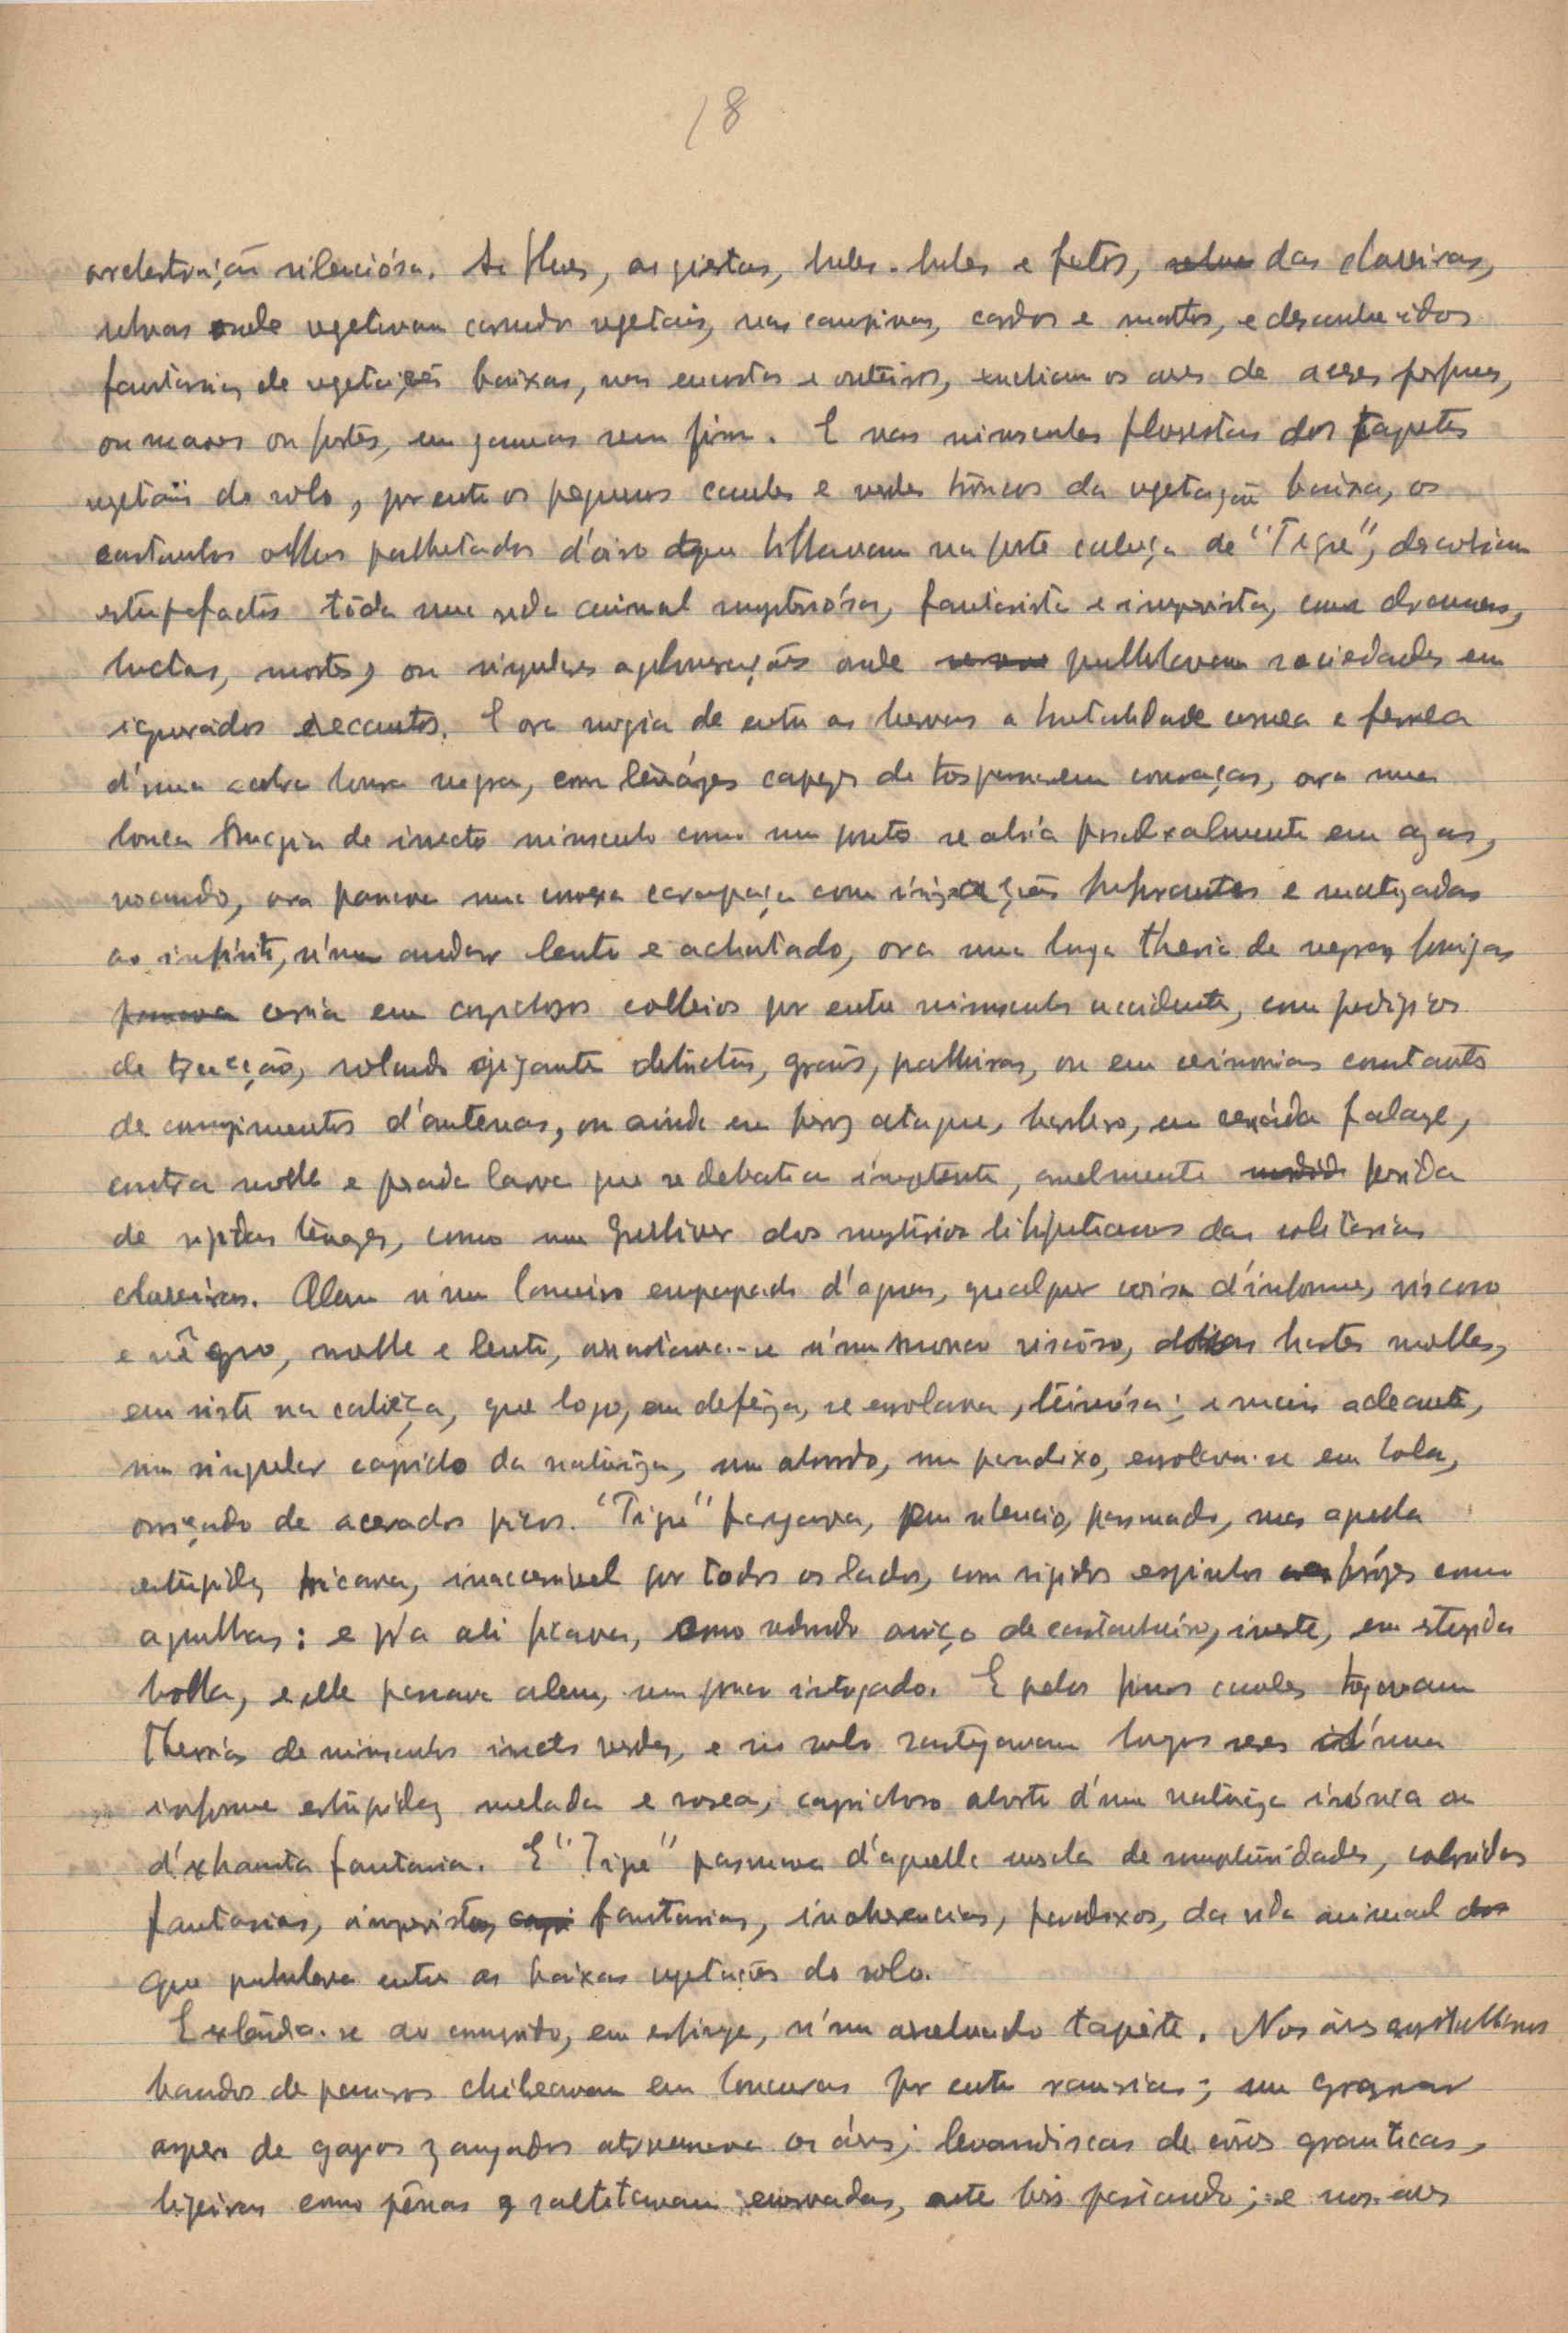 18
orchestração silenciósa. As flores, as giestas, e fetos, das clareiras,
relvas onde vegetavam vegetais, nas campinas, cardos e mattos, e desconhecidos
fantasias de vegetações baixas, nas encostas e outeiros, enchiam os ares de acres perfumes,
ou suaves ou fortes, em gammas sem fim. E nas minusculas florestas dos tapetes
vegetaes do solo, por entre os pequenos caules e verdes troncos da vegetação baixa, os
castanhos olhos palhetados d'oiro que brilhavam na forte cabeça de "Tigre", descobriam
estupefactos tôda uma vida animal mysteriósa, fantasista e imprevista, com dramas,
luctas, mortes, ou singulares agglomerações onde pullulavam sociedades em
ignorados recantos. E ora surgia de entre as hervas a brutalidade cornea e ferrea
d'uma negra, com tenázes capazes de couraças, ora uma
louca de insecto minusculo como um ponto se abria paradoxalmente em azas,
voando, ora passava uma convexa carapaça com irizações e matizadas
ao infinito, n'um andar lento e achatado, ora uma longa theoria de negras formigas
corria em caprichosos colleios por entre minusculos accidentes, com prodigios
de tracção, rolando gigantes detrictos, grãos, palhinhas, ou em cerimonias constantes
de cumprimentos d'antenas, ou ainda em feroz ataque, em cerráda falange,
contra molle e pesada larva que se debatia impotente, cruelmente ferida
de rigidas tenazes, como um Gulliver dos mysterios liliputianos das solitarias
clareiras. Alem n'um lameiro empapado d'aguas, qualquer coisa d'informe, viscoso
e nêgro, molle e lento, arrastava-se n'um viscôso, duas hastes molles,
em riste na cabeça, que logo, em defeza, se enrolava, teimósa; e mais adeante,
um singular capricho da natureza, um absurdo, um paradoxo, enrolava-se em bola,
ouriçando de acerados picos. "Tigre" farejava, em silencio, pasmado, mas aquella
estupidez ficava, inaccessivel por todos os lados, com rigidos espinhos como
agulhas: e p'ra ali ficava, como redondo ouriço de castanheiro, inerte, em estupida
bolla, e elle passava alem, um pouco intrigado. E pelos finos caules trepavam
theorias de minusculos insectos verdes, e no solo rastejavam longos seres d'uma
informe estupidez melada e rosea, caprichoso aborto d'uma natureza irónica ou
d'exhausta fantasia. E "Tigre" pasmava d'aquella mescla de monstruosidades, coloridas
fantasias, imprevistas, fantasias, incoherencias, paradoxos, da vida animal
que pullulava entre as baixas vegetações do solo.
Extendia-se ao comprido, em esfinge, n'um arrelvado tapête. Nos áres crystallinos
bandos de passaros chilreavam em loucuras por entre ramarias; um grasnar
aspero de gaios zangados atroava os áres; levandiscas de côres
ligeiras como pênas saltitavam enervadas, e nos ares